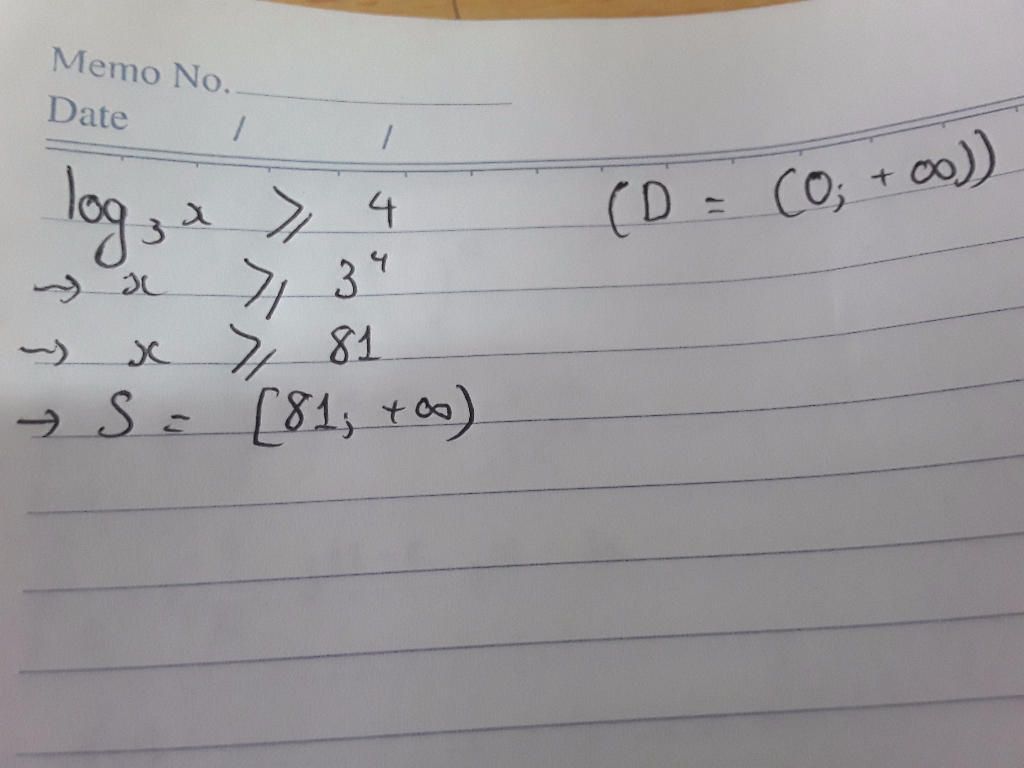 Memo No.
Date / /
log₃ x ⩾ 4 (D = (0; +∞))
→ x ⩾ 3⁴
→ x ⩾ 81
→ S = [81; +∞)